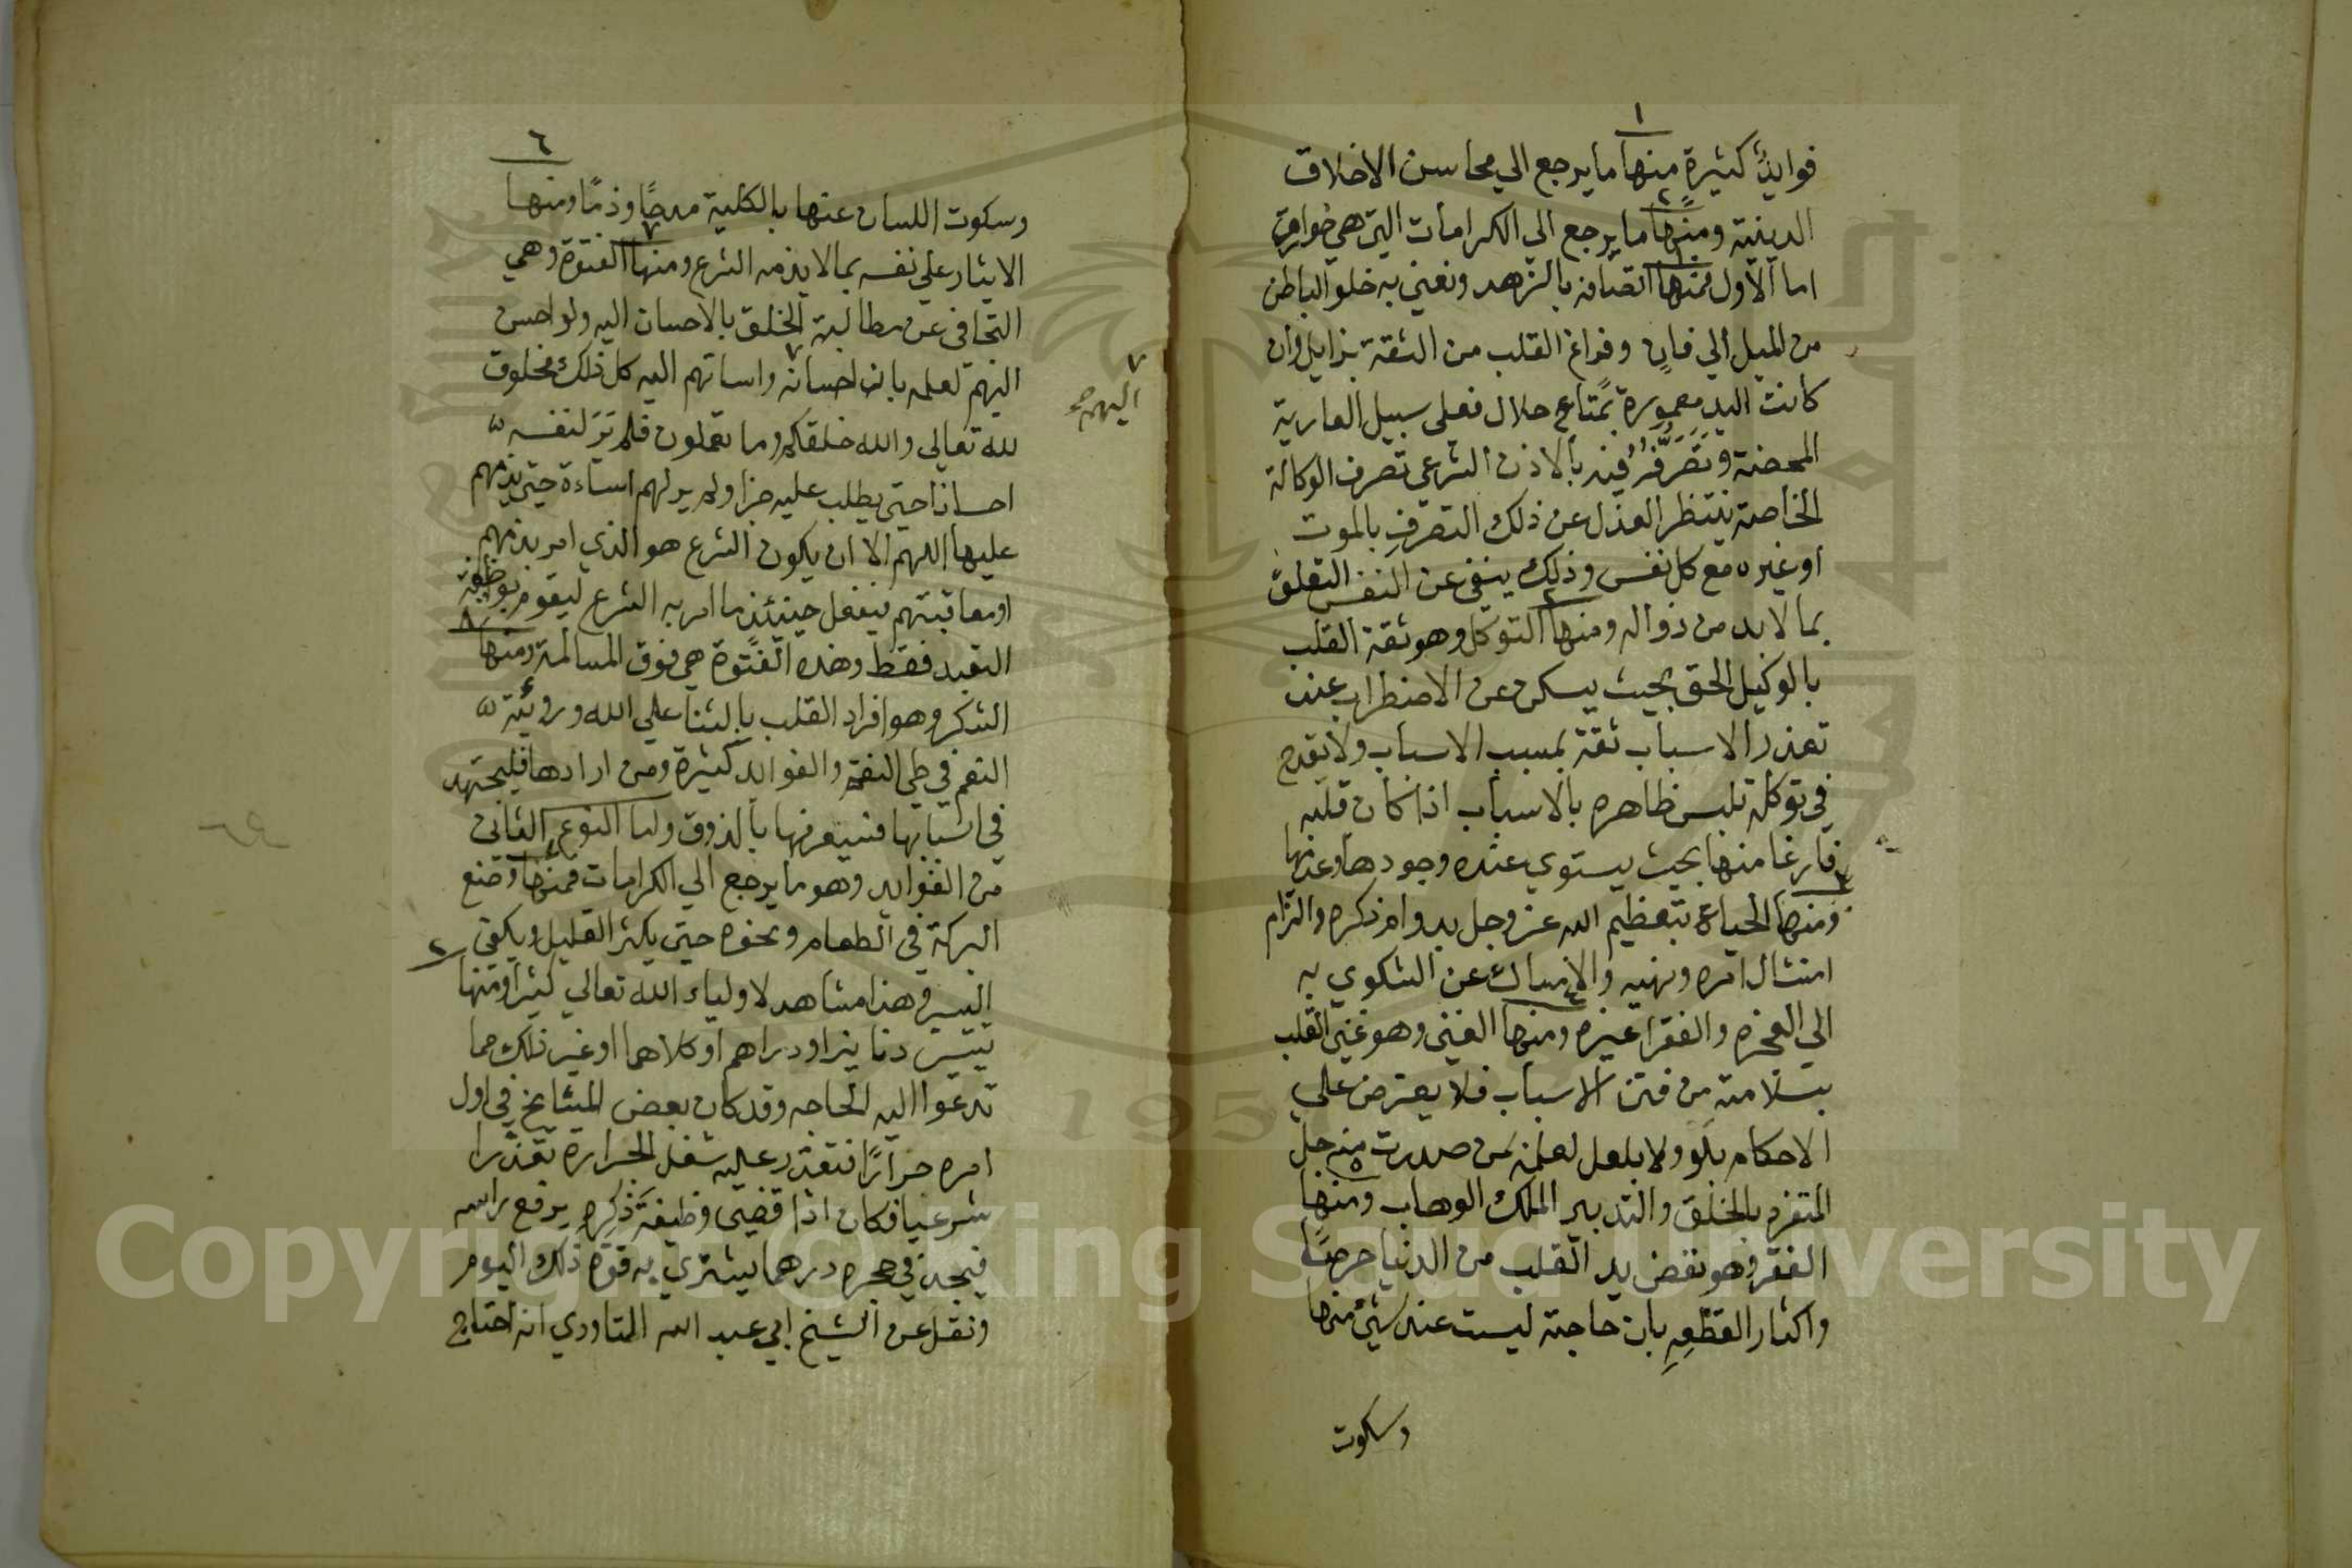 ١
فوايدُ كثيرةٍ منها ما يرجع الي محاسن الاخلاق
٢
الدينية ومنها ما يرجع الي الكرامات التي هي خوارق
١
اما الاول فمنها اتصافه بالزهد ونعني به خلو الباطن
من الميل الي فانٍ وفراغ القلب من الثقة بزايل وان
كانت اليد معمورة بمتاعٍ حلال فعلى سبيل العارية
المحضة وتَصَرُّفُه فيه بالاذن الشرعي تصرف الوكالة
الخاصة ينتظر العذل عن ذلك التصرف بالموت
او غيره مع كل نفس وذلك ينفي عن النفس التعلق
٢
بما لا بد من زواله ومنها التوكل وهو ثقة القلب
بالوكيل الحق بحيث يسكن عن الاضطراب عند
تعذر الاسباب ثقة بمسبب الاسباب ولا يقدح
في توكله تلبس ظاهره بالاسباب اذا كان قلبه
فارغا منها بحيث يستوي عنده وجودها وعدمها
٣
ومنها الحياء بتعظيم الله عز وجل بدوام ذكره والتزام
امتثال امره ونهيه والامساك عن الشكوي به
٤
الي العجزه والفقرا غيره ومنها الغني وهو غني القلب
بسلامته من فتن الاسباب فلا يعترض علي
الاحكام بلو ولا بلعل لعلمه بمن صدرت منه جل
٥
المتفرد بالخلق والتدبير الملك الوهاب ومنها
الفقر وهو نفض يد القلب من الدنيا حرصًا
واكثار القطعِهِ بان حاجته ليست عند شيٍ منها
وسكوت
٦
وسكوت اللسان عنها بالكلية مدحًا وذمًا ومنها
٧
الايثار علي نفسه بما لا يذمه الشرع ومنها الفتوة وهي
التجافي عن مطالبة الخلق بالاحسان اليه ولو احسن
اليهم لعلمه بان احسانه واساتهم اليه كل ذلك مخلوق
٧
اليهم صح
لله تعالي والله خلقكم وما تعملون فلم يَرَ لنفسه
احسانا حتي يطلب عليه جزا ولم ير لهم اساءة حتي يذمهم
عليها اللهم الا ان يكون الشرع هو الذي امر بذمهم
او معاقبتهم فيفعل حينئذ ما امر به الشرع ليقوم بوظيفة
٨
التعبد فقط وهذه الفتوة هي فوق المسالمة ومنها
الشكر وهو افراد القلب بالثنا علي الله ورؤية
النعم في طي النقمة والفوائد كثيرة ومن ارادها فليجتهد
في اسبابها فسيعرفها بالذوق واما النوع الثاني
١
من الفوايد وهو ما يرجع الي الكرامات فمنها وضع
البركة في الطعام ونحوه حتي يكثر القليل ويكفي
٢
اليسير وهذا مشاهد لاولياء الله تعالي كثيرا ومنها
تيسر دنانير او دراهم او كلاهما او غير ذلك مما
تدعوا اليه الحاجه وقد كان بعض المشايخ في اول
امره حرارًا فتعذر عليه شغل الحرارة تعذرا
شرعيا فكان اذا قضي وظيفة ذكره يرفع راسه
فيجد في حجره درهما يشتري به قوة ذلك اليوم
ونقل عن الشيخ ابي عبد الله التاودي انه احتاج
Copyright © King Saud University
1957